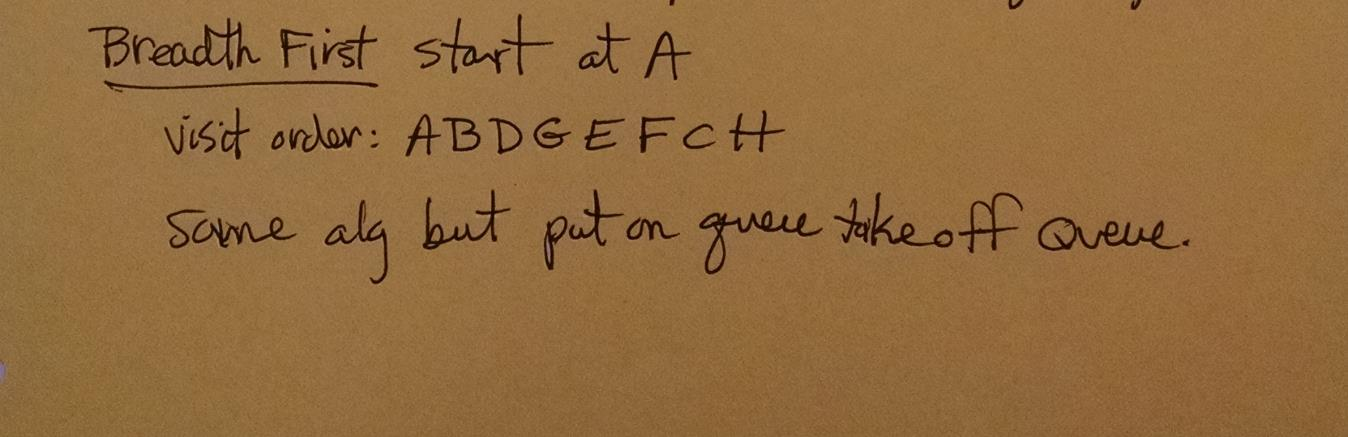 Breadth First start at A
visit order: A B D G E F C H
Same alg but put on queue take off Queue.